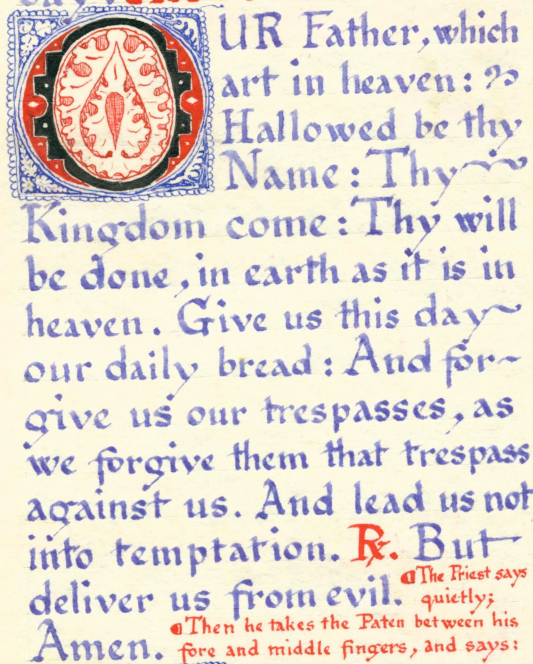 OUR Father, which
art in heaven:
Hallowed be thy
Name: Thy
Kingdom come: Thy will
be done, in earth as it is in
heaven. Give us this day
our daily bread: And for-
give us our trespasses, as
we forgive them that trespass
against us. And lead us not
into temptation. ℟. But
deliver us from evil. ¶The Priest says
quietly;
Amen. ¶Then he takes the Paten between his
fore and middle fingers, and says: